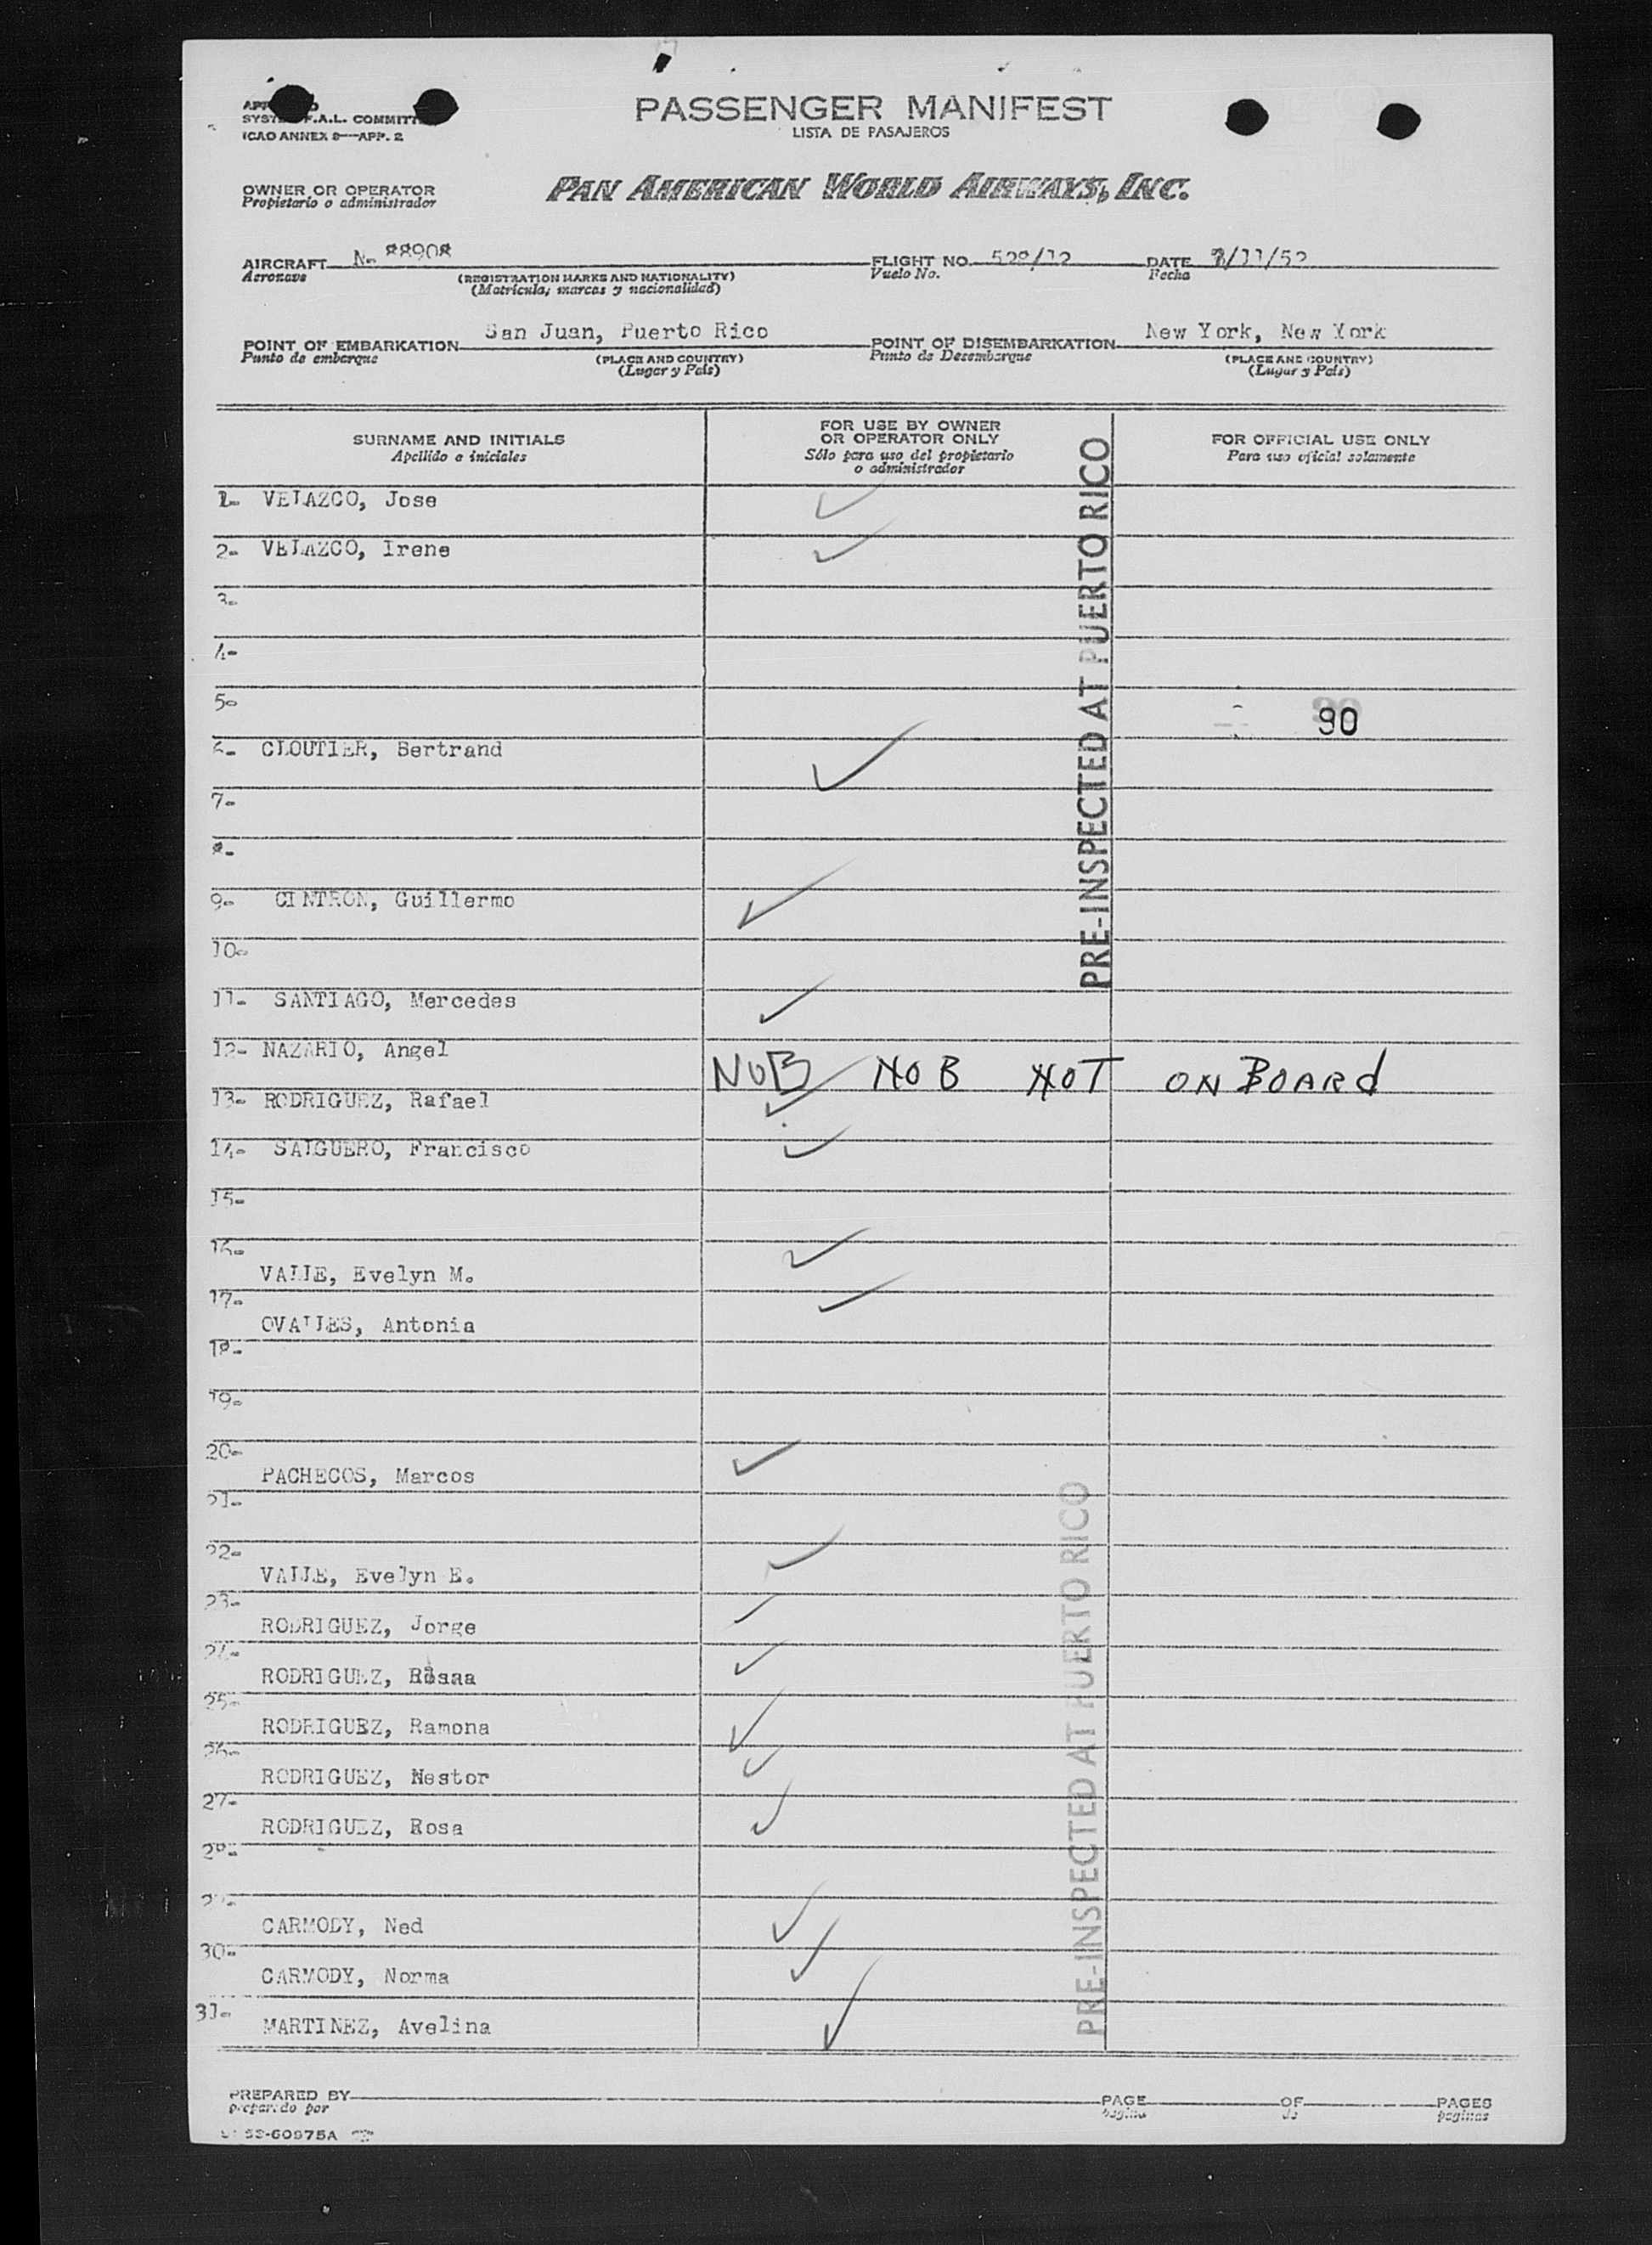 PASSENGER MANIFEST
LISTA DE PASAJEROS
F.A.L.
ICAO ANNEX 9—APP. 2
OWNER OR OPERATOR
Propietario o administrador
PAN AMERICAN WORLD AIRWAYS, INC.
AIRCRAFT N- 88908 FLIGHT NO. DATE
Aeronave (REGISTRATION MARKS AND NATIONALITY) Vuelo No. Fecha
(Matricula, marcas y nacionalidad)
POINT OF EMBARKATION San Juan, Puerto Rico POINT OF DISEMBARKATION New York, New York
Punto de embarque (PLACE AND COUNTRY) Punto de Desembarque (PLACE AND COUNTRY)
(Lugar y País) (Lugar y País)
SURNAME AND INITIALS FOR USE BY OWNER OR OPERATOR ONLY FOR OFFICIAL USE ONLY
Apellido e iniciales Sólo para uso del propietario o administrador Para uso oficial solamente
PRE-INSPECTED AT PUERTO RICO
1- VELAZCO, Jose
2- VELAZCO, Irene
3-
4-
5-
90
6- CLOUTIER, Bertrand
7-
8-
9- CINTRON, Guillermo
10-
11- SANTIAGO, Mercedes
12- NAZARIO, Angel NOB NOB NOT ON BOARd
13- RODRIGUEZ, Rafael
14- SALGUERO, Francisco
15-
16-
VALLE, Evelyn M.
17-
OVALLES, Antonia
18-
19-
20-
PACHECOS, Marcos
21-
22-
VALLE, Evelyn E.
23-
RODRIGUEZ, Jorge
24-
RODRIGUEZ,
25-
RODRIGUEZ, Ramona
26-
RODRIGUEZ, Nestor
27-
RODRIGUEZ, Rosa
28-
29-
CARMODY, Ned
30-
CARMODY, Norma
31-
MARTINEZ, Avelina
PRE-INSPECTED AT PUERTO RICO
PREPARED BY PAGE OF PAGES
preparado por pagina de paginas